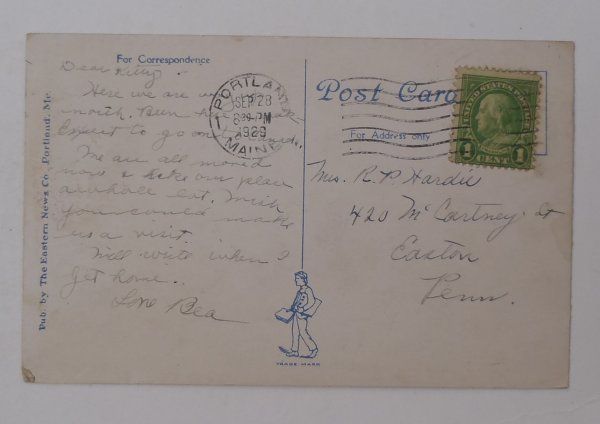 For Correspondence
Dear Kitty:
Here we are
north. Been here
to go on
We are all moved
now & like our place
awhole lot. Wish
you could make
us a visit.
Will write when I
get home..
Love Bea
Pub. by The Eastern News Co., Portland, Me.
PORTLAND
SEP 28
8 30 PM
1929
MAINE
Post Card
For Address only
UNITED STATES POSTAGE
1 CENT 1
Mrs. R. P. Hardie
420 McCartney St
Easton
Penn.
TRADE MARK